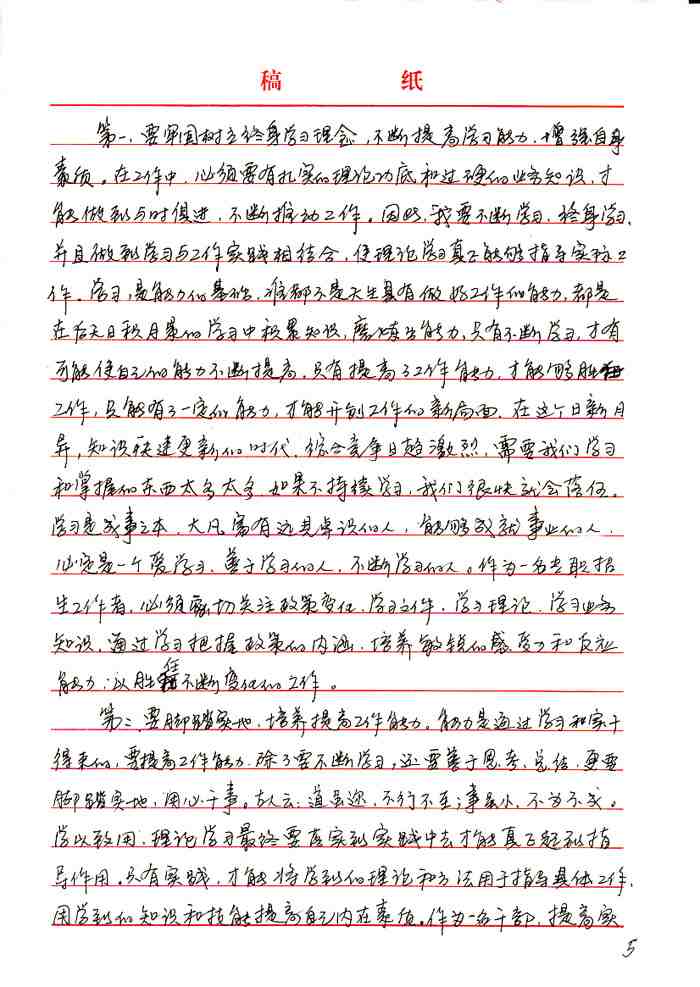 稿 纸
第一、要牢固树立终身学习理念，不断提高学习能力，增强自身
素质。在工作中，必须要有扎实的理论功底和过硬的业务知识，才
能做到与时俱进，不断推动工作。因此，我要不断学习，终身学习，
并且做到学习与工作实践相结合，使理论学习真正能够指导实际工
作。学习是能力的基础，谁都不是天生具有做好工作的能力，都是
在后天日积月累的学习中积累知识，磨练出能力，只有不断学习，才有
可能使自己的能力不断提高，只有提高了工作能力，才能够胜
工作，只能有了一定的能力，才能开创工作的新局面。在这个日新月
异，知识快速更新的时代，综合竞争日趋激烈，需要我们学习
和掌握的东西太多太多，如果不持续学习，我们很快就会落伍。
学习是成事之本，大凡富有远见卓识的人，能够成就事业的人，
必定是一个爱学习、善于学习的人，不断学习的人。作为一名专职招
生工作者，必须密切关注政策变化，学习文件，学习理论，学习业务
知识，通过学习把握政策的内涵，培养敏锐的感受力和反应
能力，以胜任不断变化的工作。
第二、要脚踏实地，培养提高工作能力。能力是通过学习和实干
得来的，要提高工作能力，除了要不断学习，还要善于思考、总结，更要
脚踏实地，用心干事。古人云：道虽迩，不行不至；事虽小，不为不成。
学以致用，理论学习最终要落实到实践中去才能真正起到指
导作用。只有实践，才能将学到的理论和方法用于指导具体工作，
用学到的知识和技能提高自己内在素质。作为一名干部，提高实
5